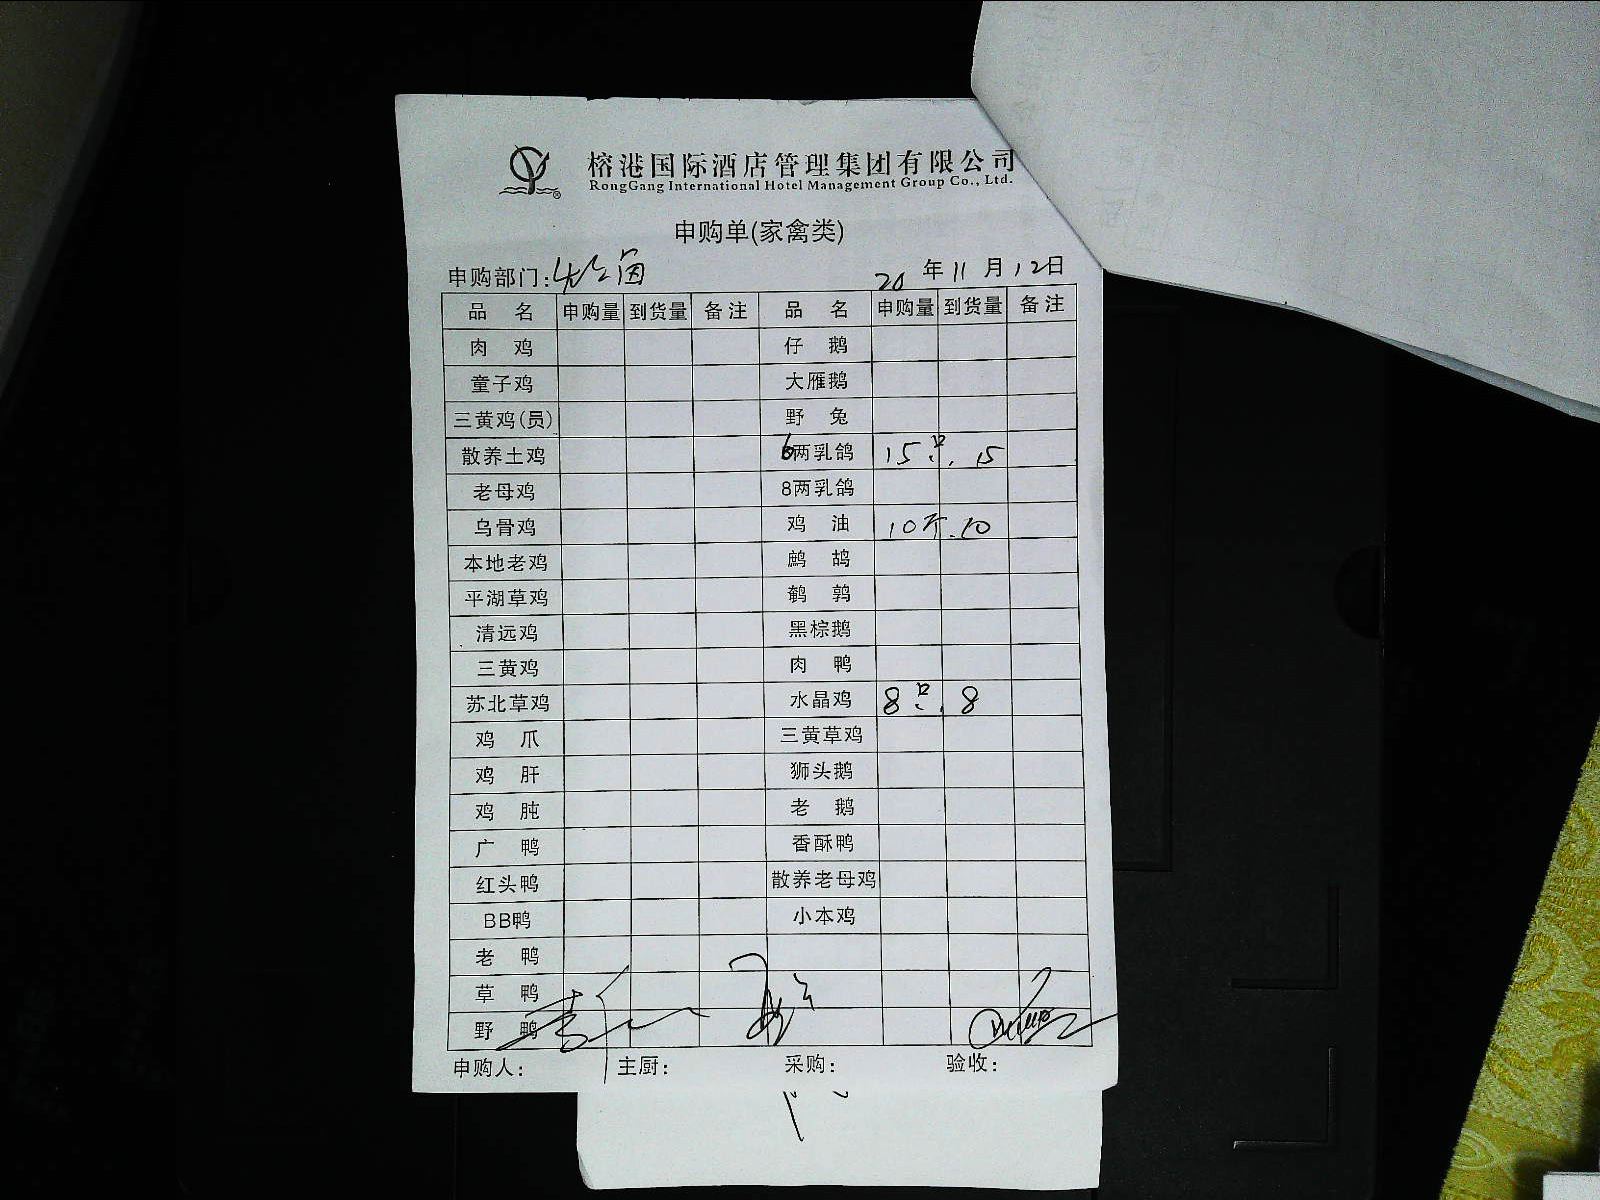 榕港国际酒店管理集团有限公司
RongGang International Hotel Management Group Co., Ltd.
申购单(家禽类)
申购部门:
20 年 11 月 12 日
品 名 申购量 到货量 备注 品 名 申购量 到货量 备注
肉 鸡 仔 鹅
童子鸡 大雁鹅
三黄鸡(员) 野 兔
散养土鸡 6两乳鸽 15只. 15
老母鸡 8两乳鸽
乌骨鸡 鸡 油 10斤. 10
本地老鸡 鹧 鸪
平湖草鸡 鹌 鹑
清远鸡 黑棕鹅
三黄鸡 肉 鸭
苏北草鸡 水晶鸡 8只. 8
鸡 爪 三黄草鸡
鸡 肝 狮头鹅
鸡 肫 老 鹅
广 鸭 香酥鸭
红头鸭 散养老母鸡
BB鸭 小本鸡
老 鸭
草 鸭
野 鸭
申购人: 主厨: 采购: 验收: